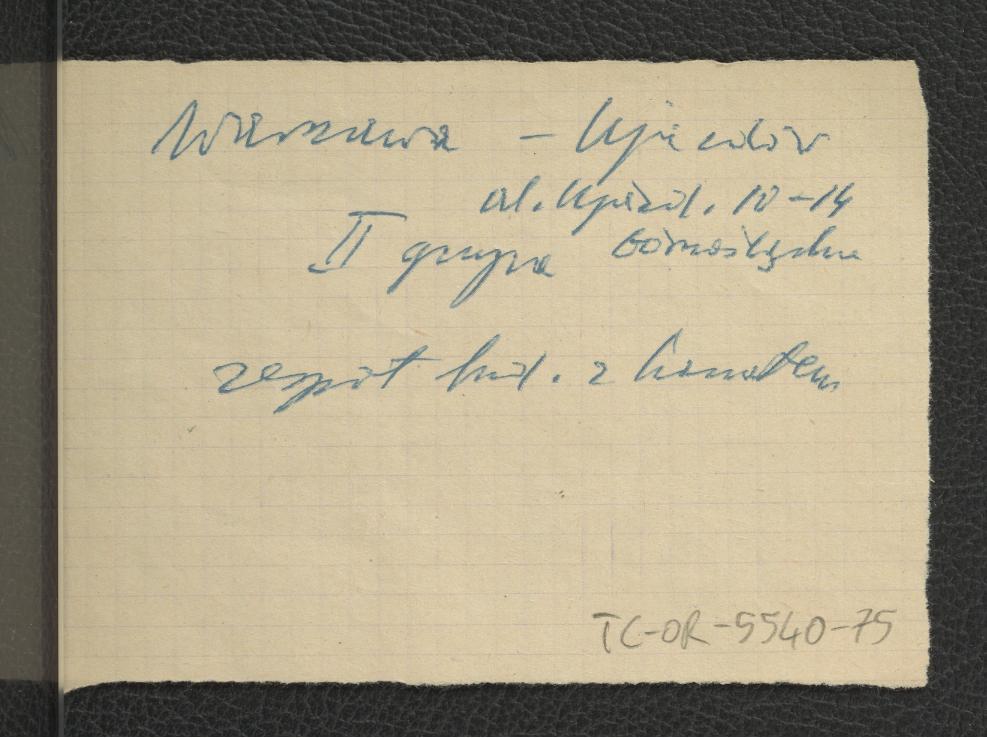 Warszawa – Ujazdów
al. Ujazd. 10-14
II grupa Górnośląska
zespół bud. z
TC-OR-5540-75